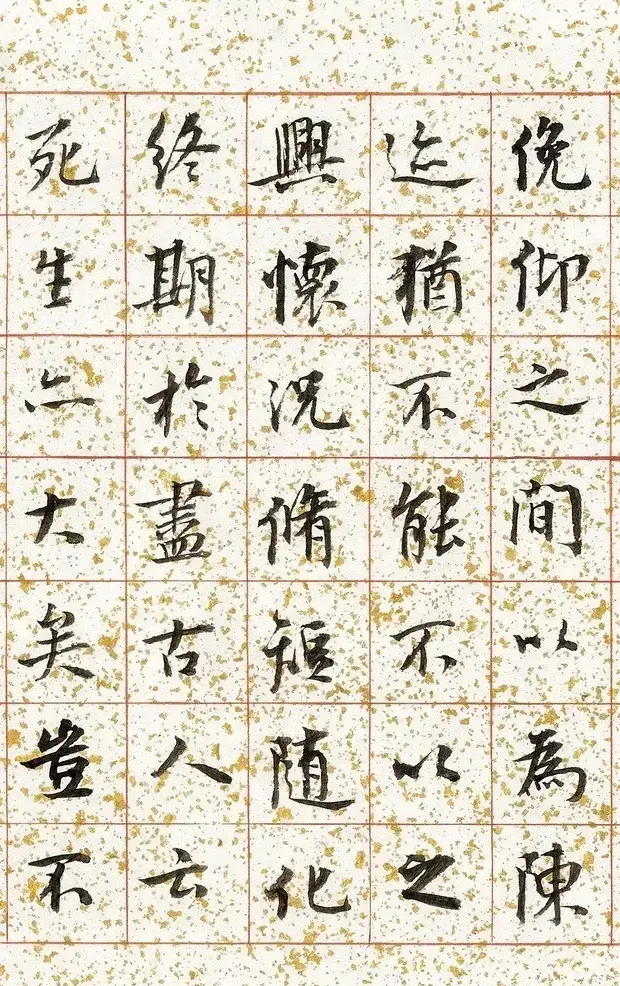 俛仰之間以為陳
迹猶不能不以之
興懷況脩短随化
終期於盡古人云
死生亦大矣豈不